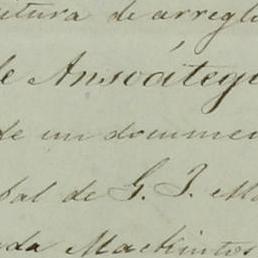 itura de arregl
de Ansoátegui
de un documen
bal de G. J. Ma
nda Mackintos